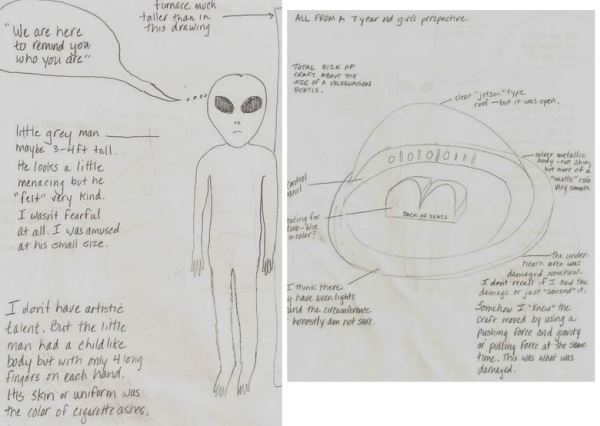 furnace much
taller than in
this drawing
"We are here
to remind you
who you are"
little grey man
maybe 3-4ft tall.
He looks a little
menacing but he
"felt" very kind.
I wasn't fearful
at all. I was amused
at his small size.
I don't have artistic
talent. But the little
man had a childlike
body but with only 4 long
fingers on each hand.
His skin or uniform was
the color of cigarette ashes.
ALL FROM A 7 year old girl's perspective.
TOTAL SIZE OF
CRAFT ABOUT THE
SIZE OF A VOLKSWAGON
BEETLE.
clear "Jetson" type
roof - but it was open.
silver metallic
body - not shiny
but more of a
"matte" color
very smooth
control
panel
seating for
two - blue
in color?
BACK OF SEATS
the under-
neath area was
damaged somehow.
I don't recall if I saw the
damage or just "sensed" it.
I think there
may have been lights
around the circumference
honestly am not sure.
Somehow I "knew" the
craft moved by using a
pushing force and gravity
or pulling force at the same
time. This was what was
damaged.